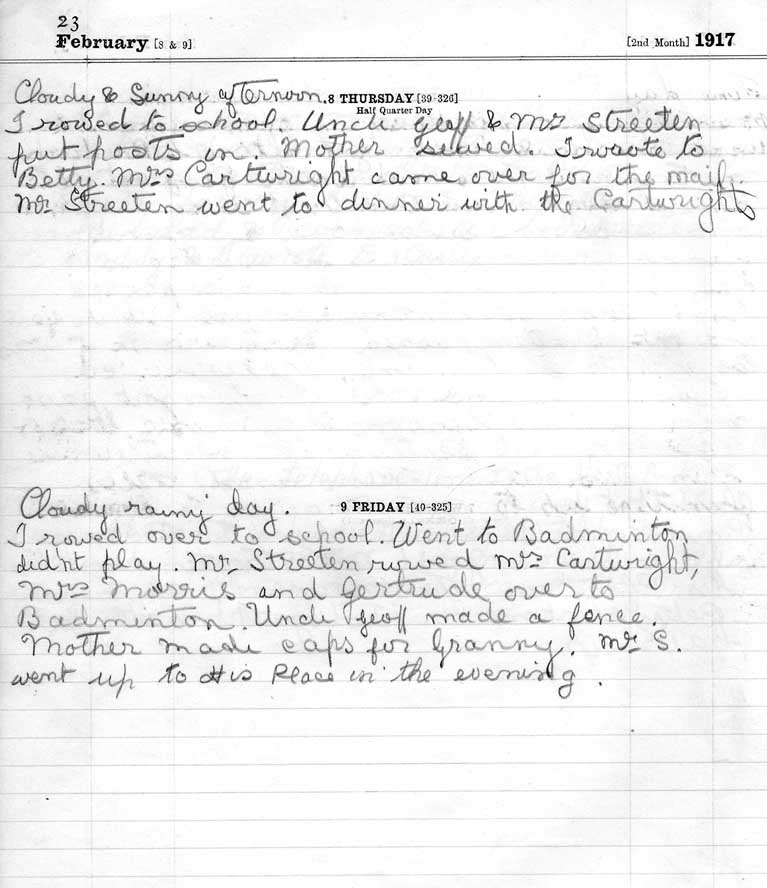 23
February [8 & 9] [2nd Month] 1917
Cloudy & Sunny afternoon. 8 THURSDAY [39-326]
Half Quarter Day
I rowed to school. Uncle Geoff & Mr Streeten
put posts in. Mother sewed. I wrote to
Betty. Mrs Cartwright came over for the mail.
Mr Streeten went to dinner with the Cartwrights
Cloudy rainy day. 9 FRIDAY [40-325]
I rowed over to school. Went to Badminton
did'nt play. Mr Streeten rowed Mrs Cartwright,
Mrs Morris and Gertrude over to
Badminton. Uncle Geoff made a fence.
Mother made caps for Granny. Mr S.
went up to His Place in the evening.